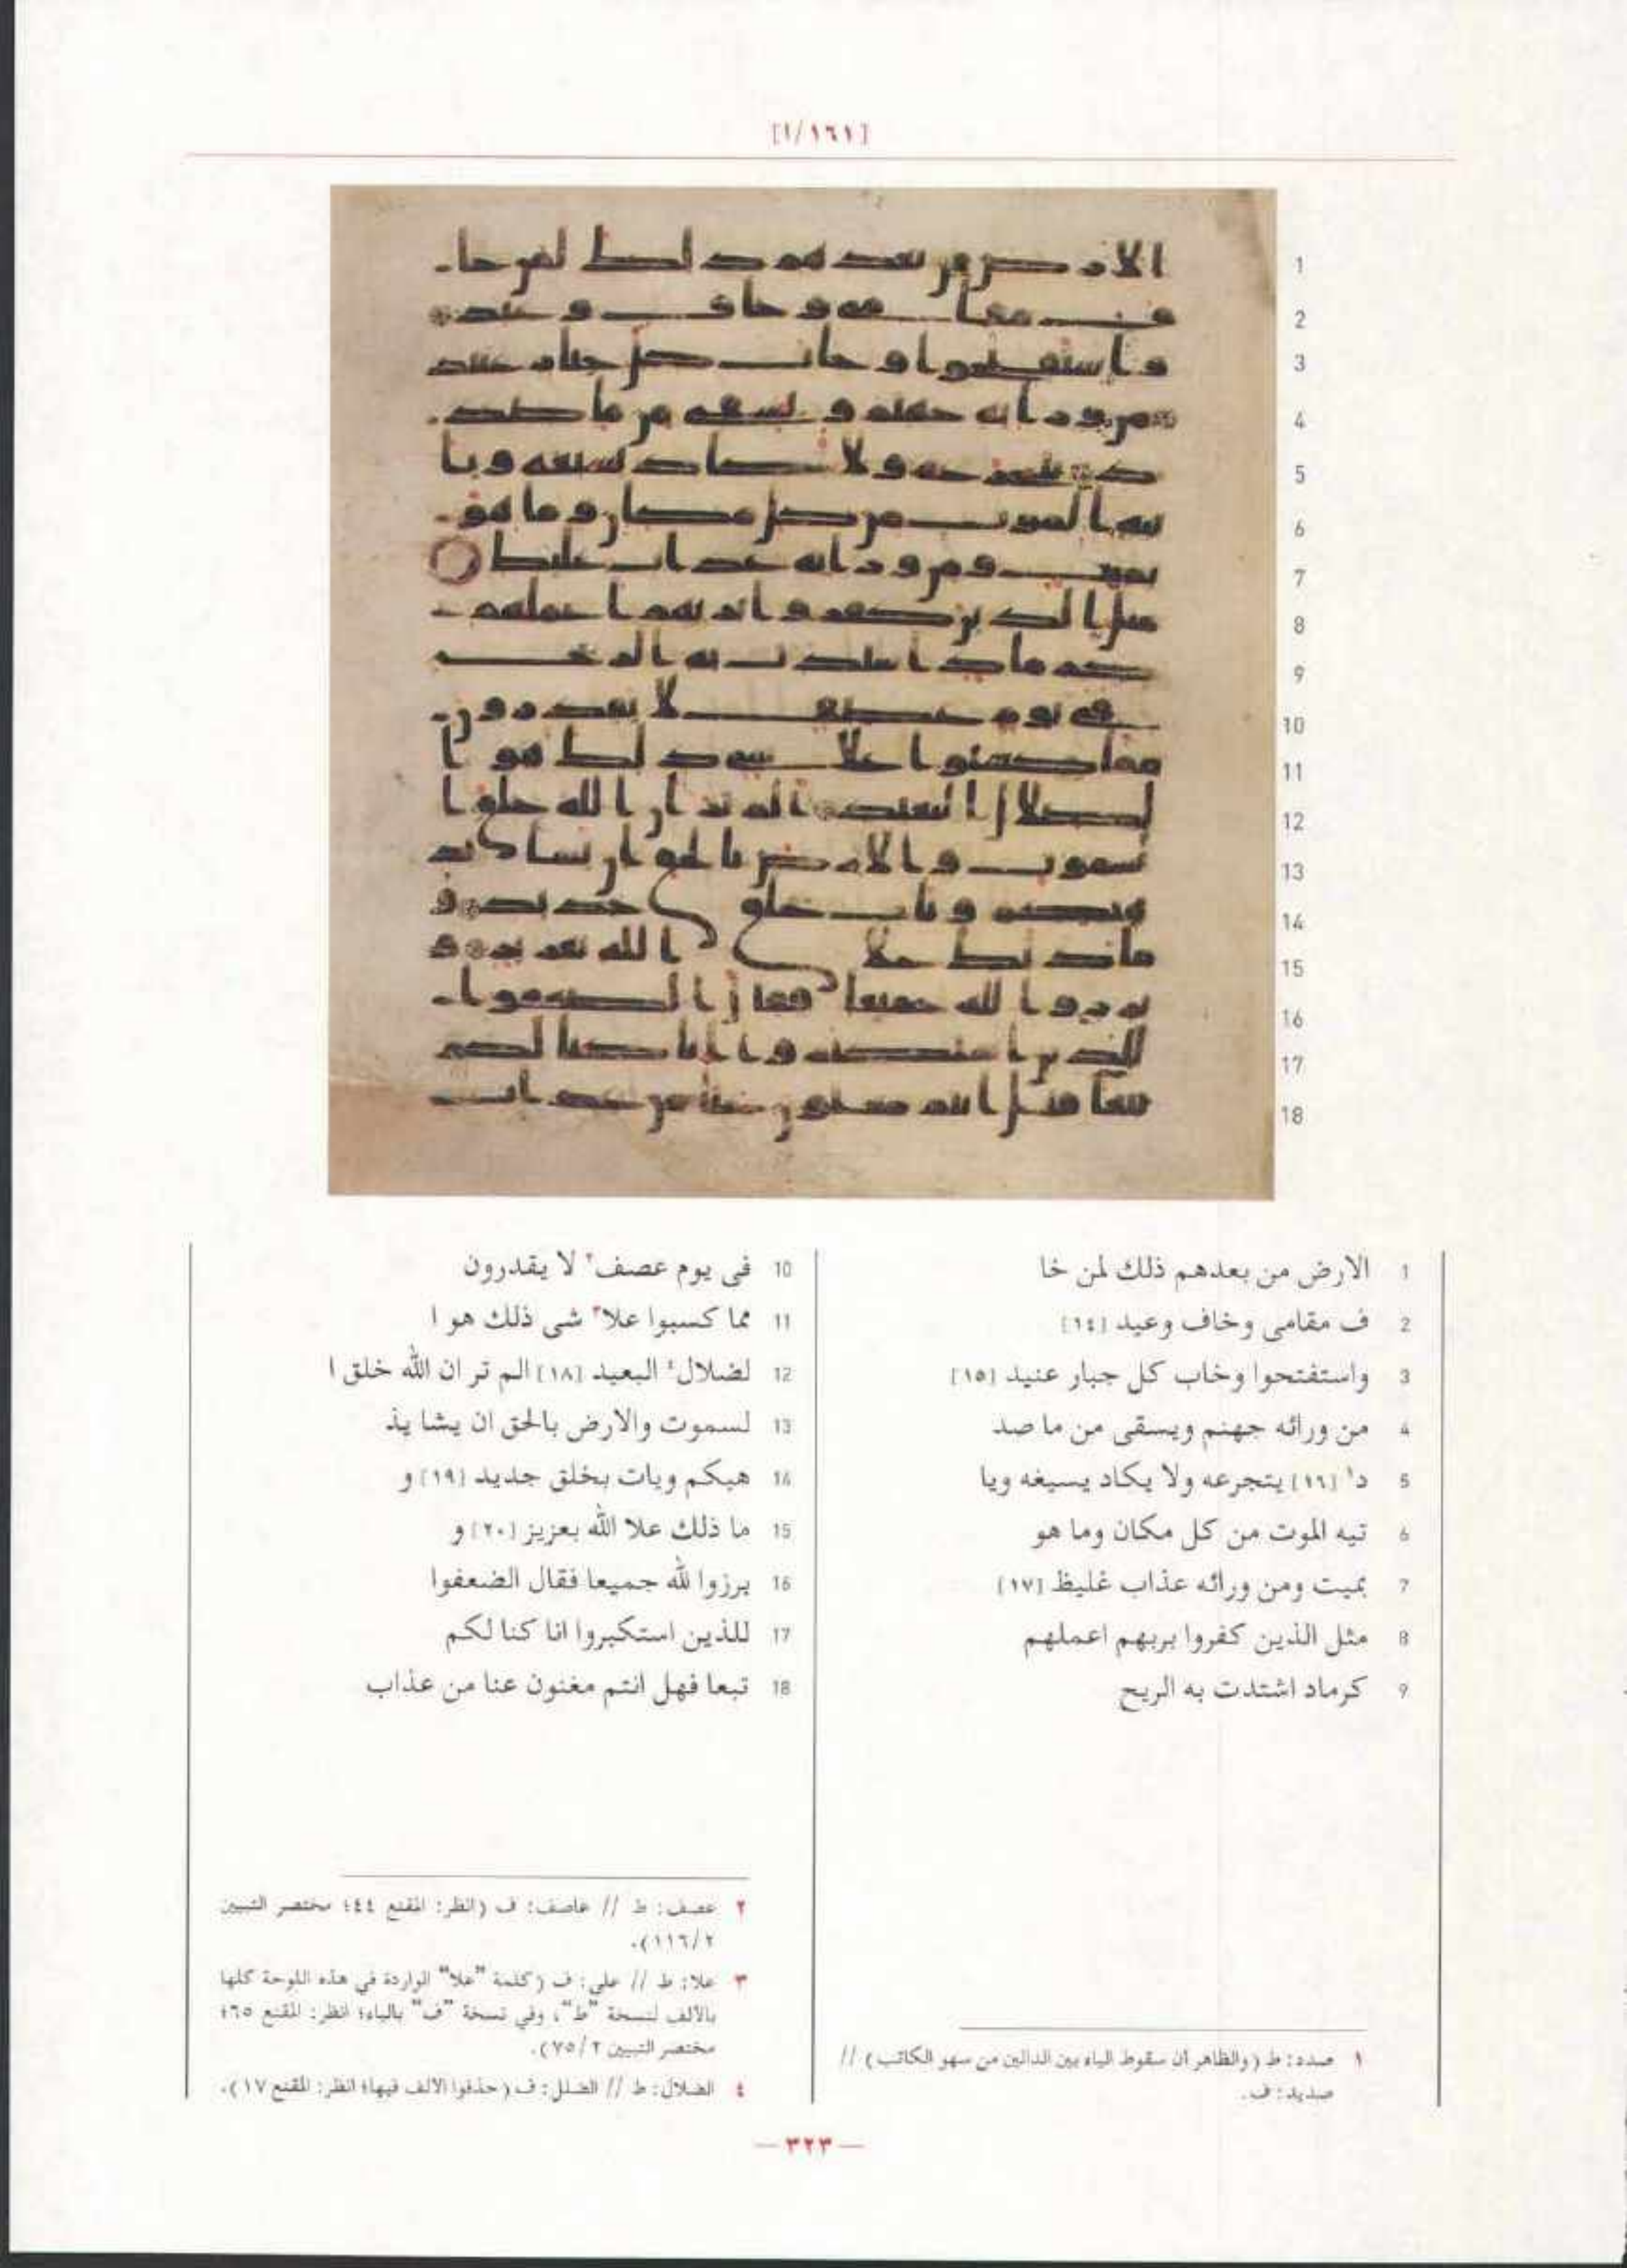 [١/١٦١]
1 الارض من بعدهم ذلك لمن خا
2 ف مقامى وخاف وعيد [١٤]
3 واستفتحوا وخاب كل جبار عنيد [١٥]
4 من ورائه جهنم ويسقى من ما صد
5 د١ [١٦] يتجرعه ولا يكاد يسيغه ويا
6 تيه الموت من كل مكان وما هو
7 بميت ومن ورائه عذاب غليظ [١٧]
8 مثل الذين كفروا بربهم اعملهم
9 كرماد اشتدت به الريح
10 فى يوم عصف٢ لا يقدرون
11 مما كسبوا علا٣ شى ذلك هو ا
12 لضلال٤ البعيد [١٨] الم تر ان الله خلق ا
13 لسموت والارض بالحق ان يشا يذ
14 هبكم ويات بخلق جديد [١٩] و
15 ما ذلك علا الله بعزيز [٢٠] و
16 برزوا لله جميعا فقال الضعفوا
17 للذين استكبروا انا كنا لكم
18 تبعا فهل انتم مغنون عنا من عذاب
١ صدد: ط (والظاهر أن سقوط الياء بين الدالين من سهو الكاتب) //
صديد: ف.
٢ عصف: ط // عاصف: ف (انظر: المقنع ٤٤؛ مختصر التبيين
٢/١١٦).
٣ علا: ط // على: ف (كلمة "علا" الواردة في هذه اللوحة كلها
بالألف لنسخة "ط"، وفي نسخة "ف" بالياء؛ انظر: المقنع ٦٥؛
مختصر التبيين ٢/٧٥).
٤ الضلال: ط // الضلل: ف (حذفوا الألف فيها؛ انظر: المقنع ١٧).
— ٣٢٣ —